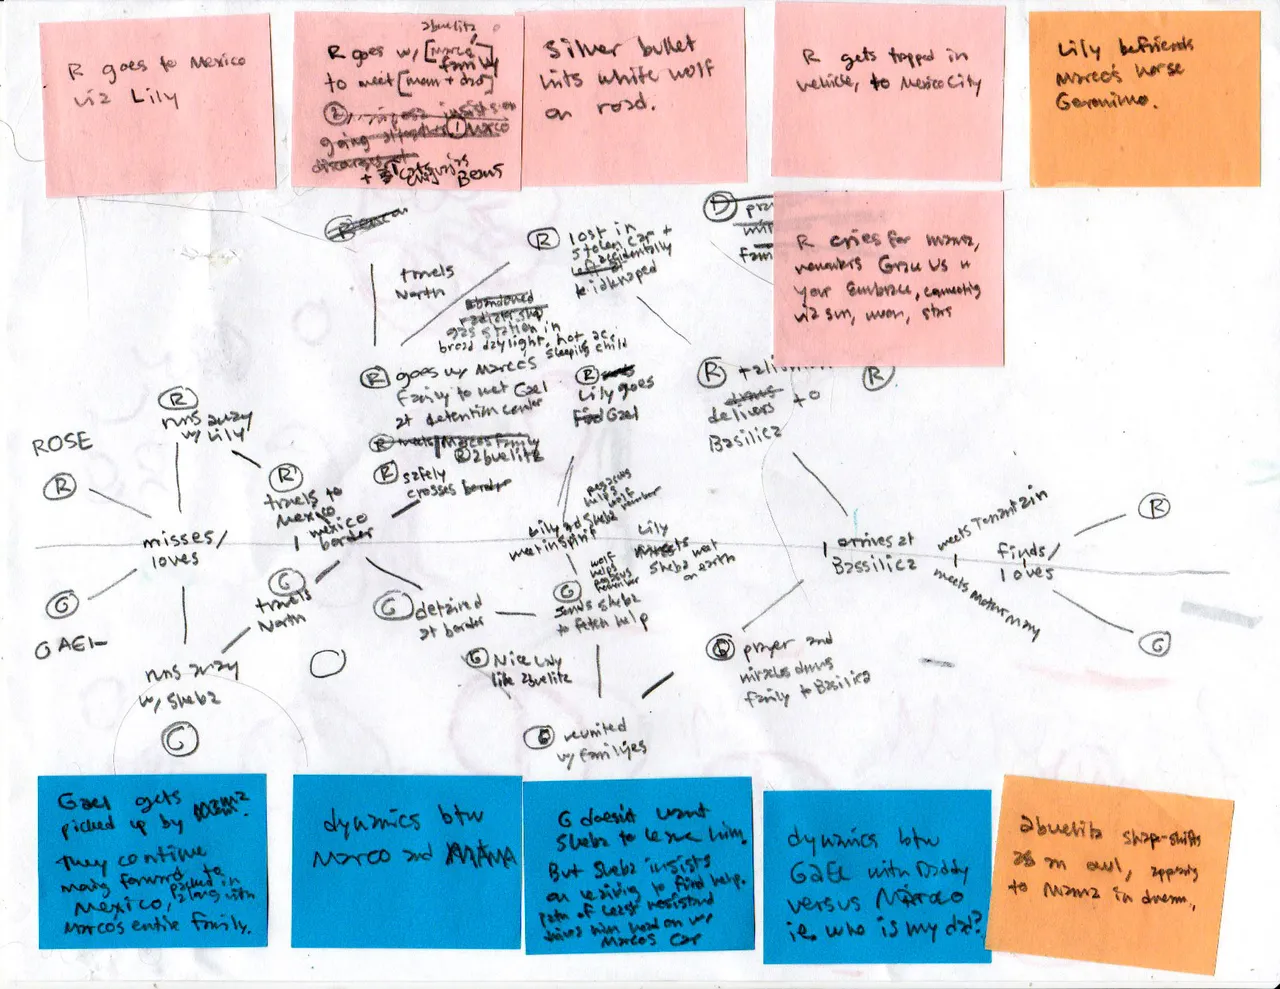 R goes to Mexico
viz Lily
abuelita
R goes w/ [Marco's
family]
to meet [mom + dad]
②
insists on
going
① Marco
+
Beans
Silver bullet
hits white wolf
on road.
R gets trapped in
vehicle, to Mexico City
Lily befriends
Marco's horse
Geronimo.
R cries for mama,
remembers Grace Us w
Your Embrace, connecting
via sun, moon, stars
travels
North
R lost in
stolen car +
accidentally
kidnaped
abandoned
gas station in
broad daylight, hot ac,
sleeping child
R goes w/ Marco's
family to meet Gael
at detention center
R meets Marco's Family
R abuelita
R safely
crosses border
R
Lily goes
find Gael
R
delivers to
Basilica
R
R
runs away
w/ Lily
ROSE
R
R
travels to
Mexico
mexico
border
misses/
loves
G
GAEL
G
travels
North
runs away
w/ Sheba
G
G detained
at border
Lily and Sheba
meet in spirit
pegasus
helps
wolf
Lily
meets
Sheba meet
on earth
wolf
helps
pegasus
G
sends Sheba
to fetch help
G Nice Lady
like abuelita
G reunited
w/ families
prayer and
miracles draws
family to Basilica
arrives at
Bassilica
meets Tonantzin
meets Mother mary
finds/
loves
R
G
Gael gets
picked up by MAMA.
They continue
moving forward to
Mexico, packed in
along with
Marcos entire family.
dynamics btw
Marco and MAMA
G doesn't want
Sheba to leave him.
But Sheba insists
on leaving to find help.
path of least resistant
drives him head on w/
Marcos Car
dynamics btw
GAEL with Daddy
versus Marco
ie. who is my dad?
abuelita shape-shifts
as an owl, appears
to Mama in dream.